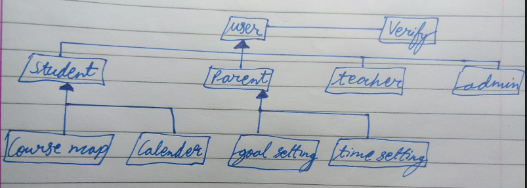 user
Verify
Student
Parent
teacher
admin
Course map
Calender
goal setting
time setting